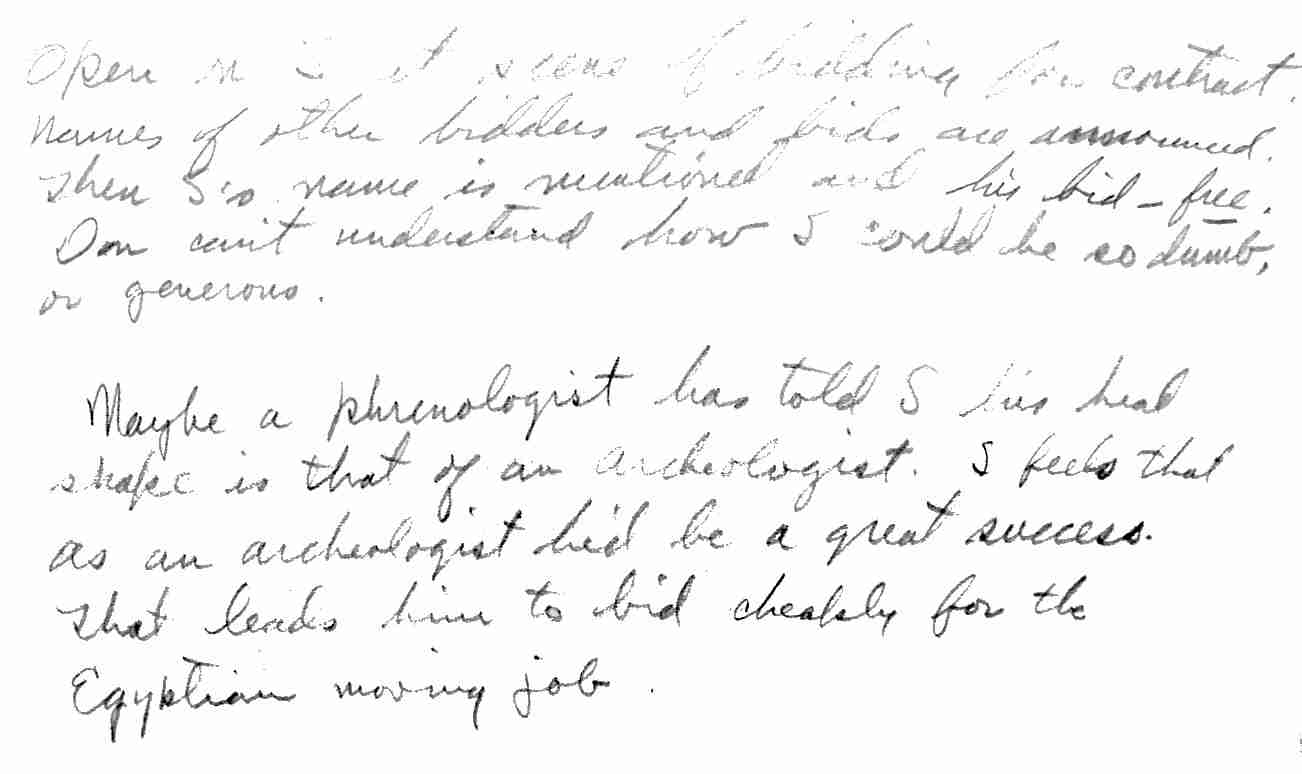 Open on S at scene of bidding for contract.
Names of other bidders and bids are announced.
Then S's name is mentioned and his bid – free.
Don can't understand how S could be so dumb,
or generous.
Maybe a phrenologist has told S his head
shape is that of an archeologist. S feels that
as an archeologist he'd be a great success.
That leads him to bid cheaply for the
Egyptian moving job.